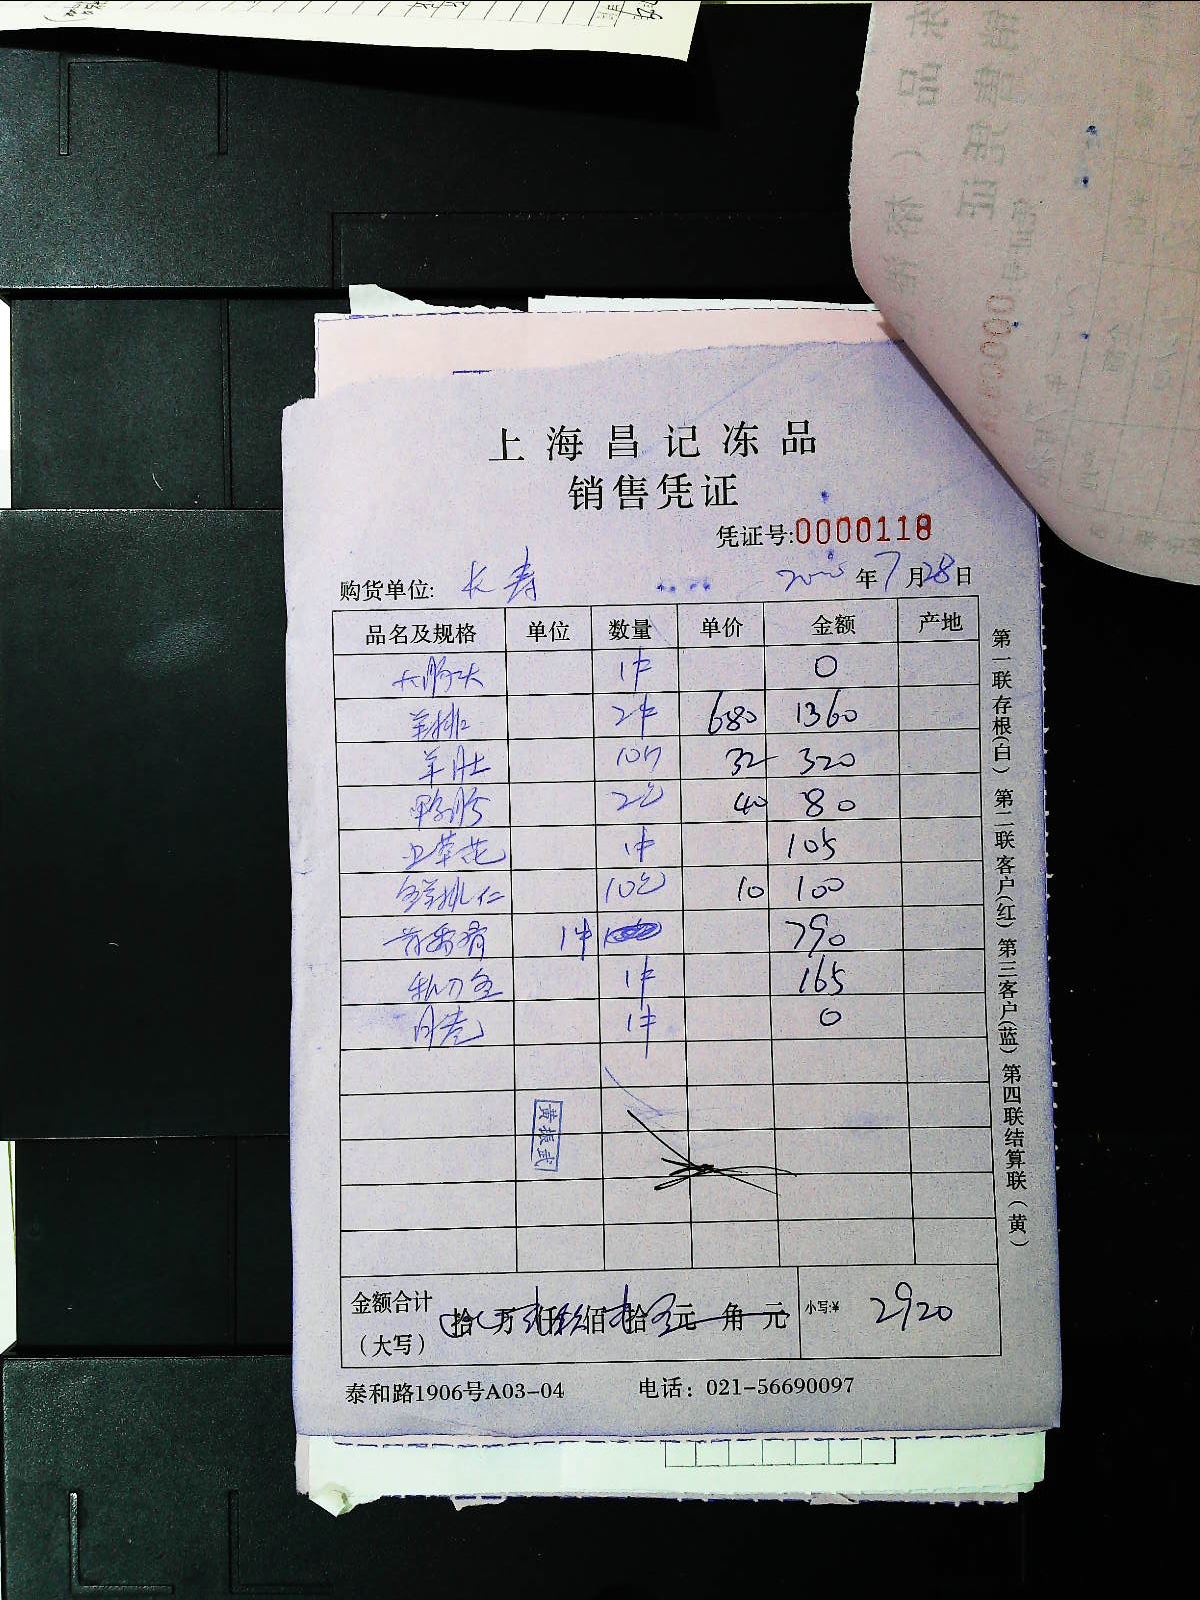 上海昌记冻品
销售凭证
凭证号:0000118
购货单位: 长寿 年7月28日
品名及规格 单位 数量 单价 金额 产地
大肠头 1件 0
羊排 2件 680 1360
羊肚 10斤 32 320
鸭肠 2包 40 80
1件 105
10包 10 100
1件 790
秋刀鱼 1件 165
1件 0
黄振武
金额合计
(大写) 拾 万 仟 佰 拾 元 角 元 小写:¥ 2920
泰和路1906号A03-04 电话：021-56690097
第一联存根(白) 第二联客户(红) 第三客户(蓝) 第四联结算联(黄)